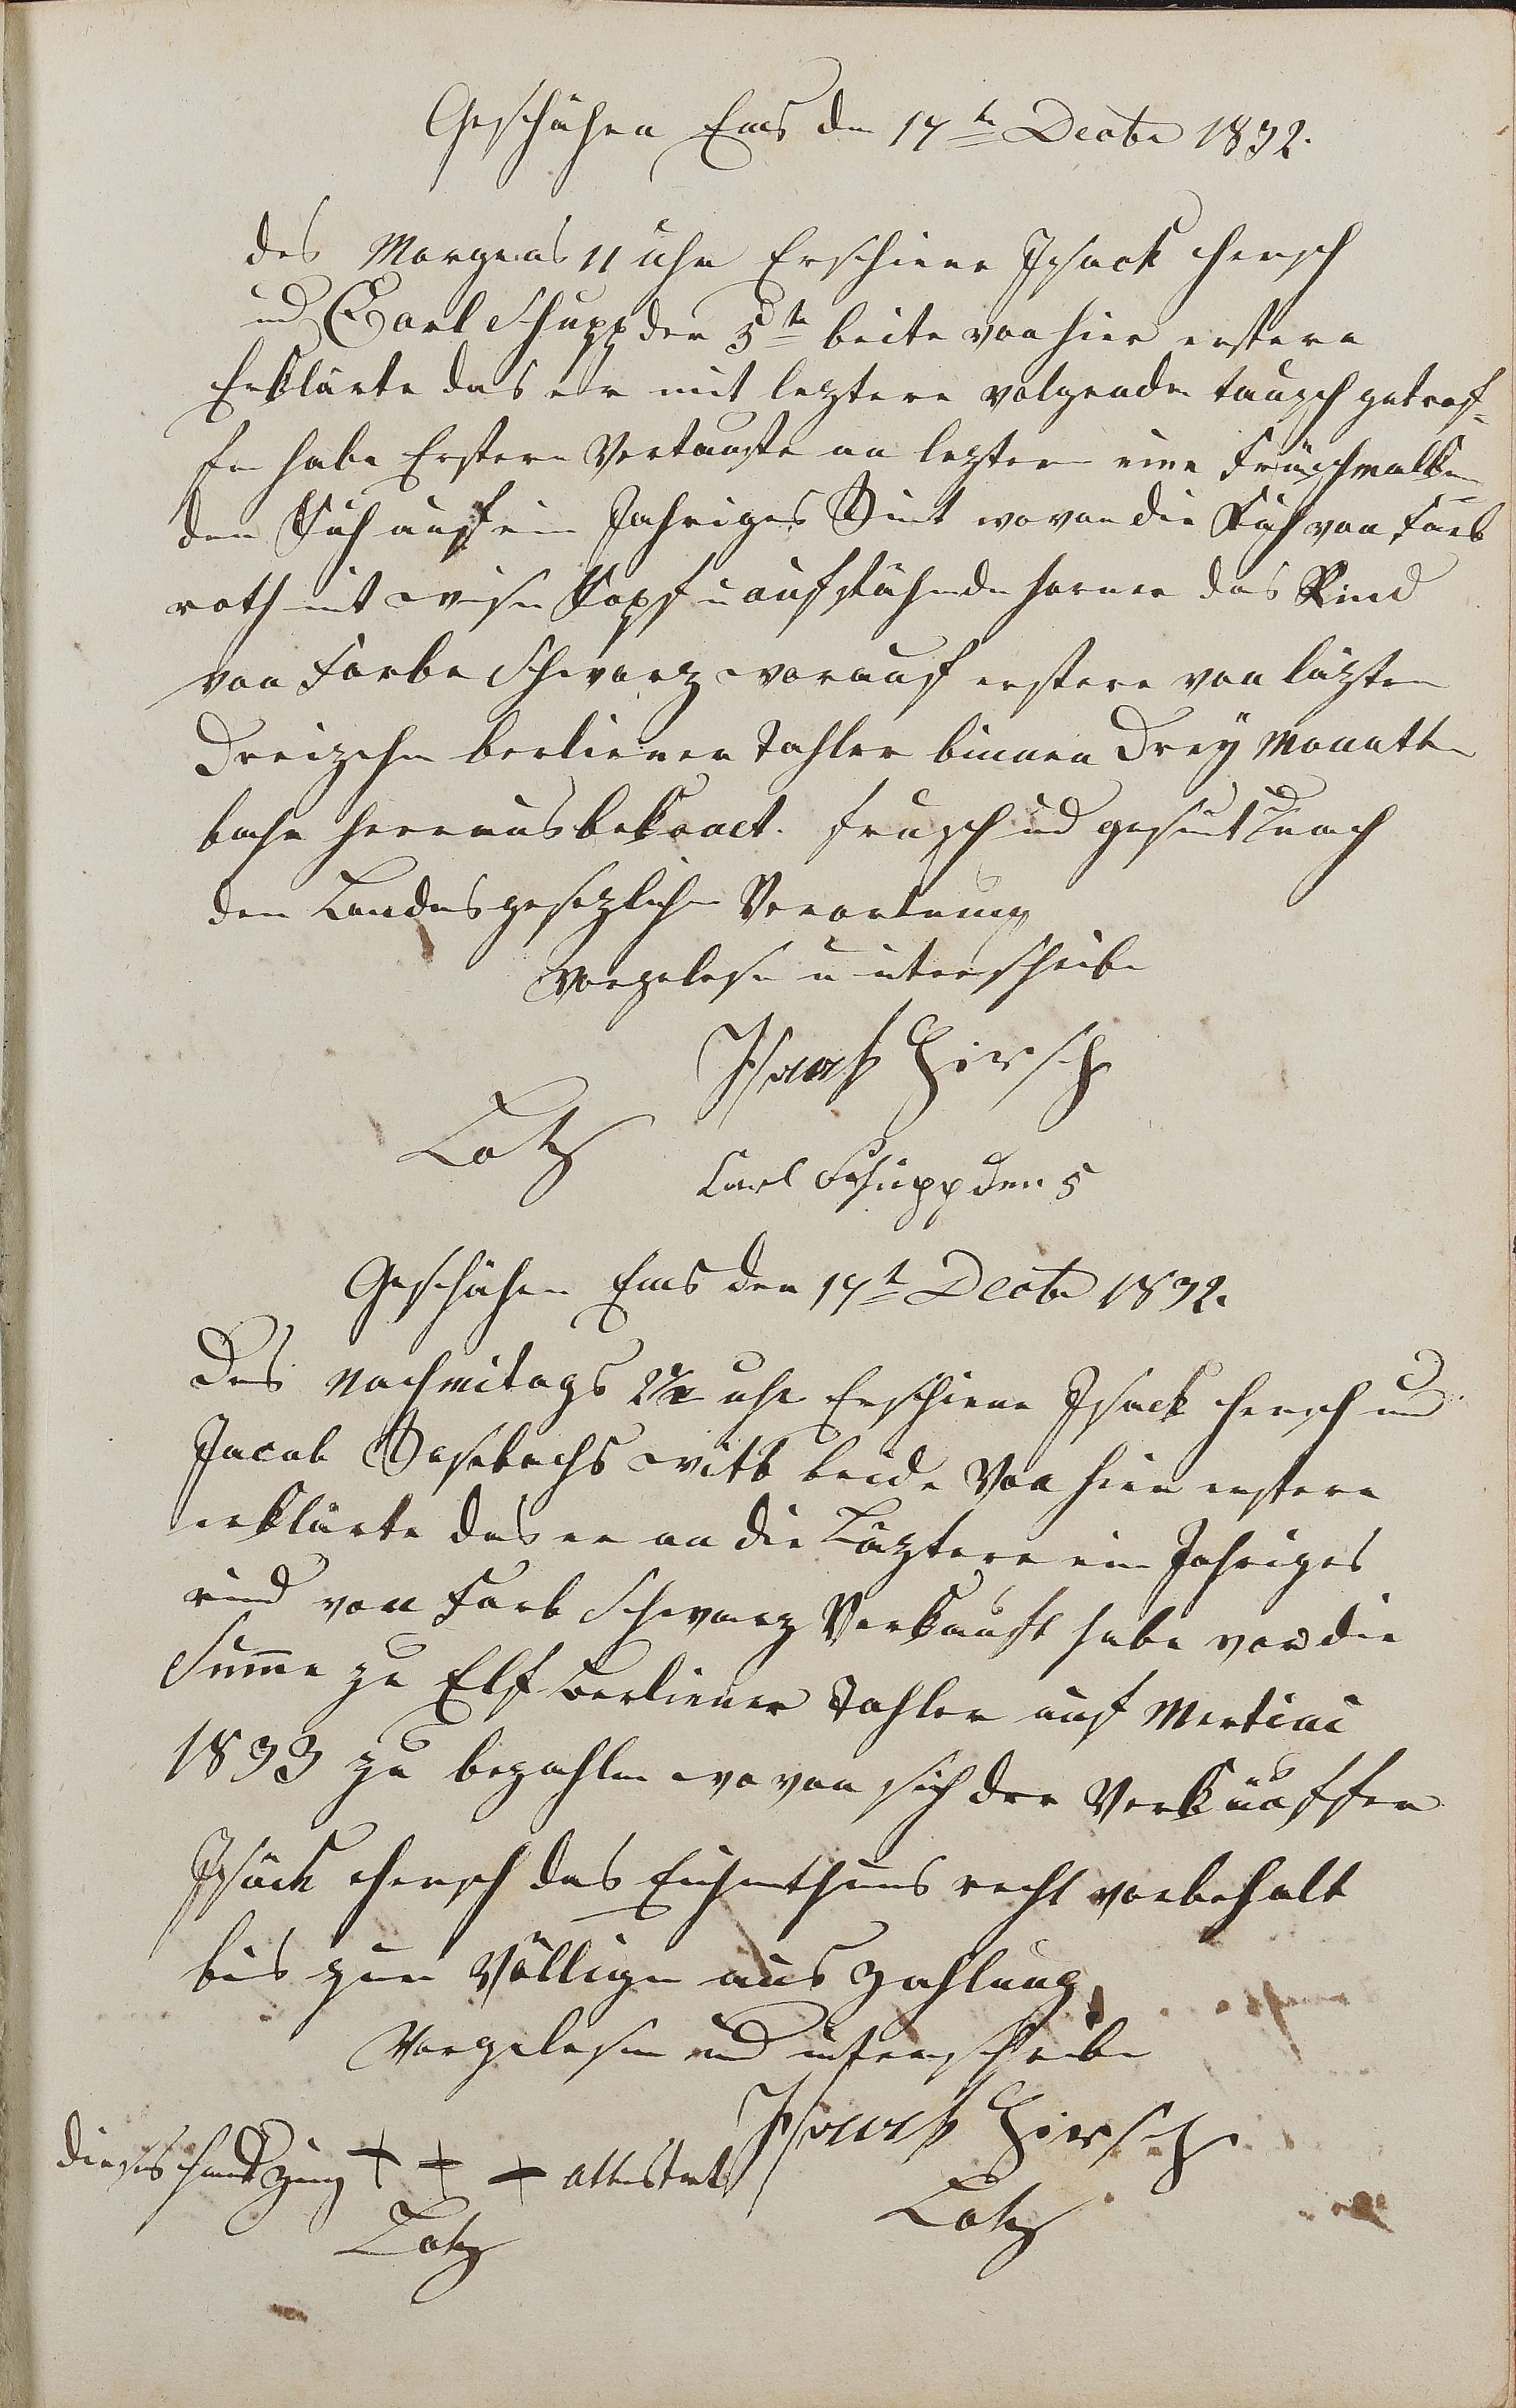 Geschähen Ems den 17ten Decbr 1832.
des Morgens 11 uhr Erschiene Isack Hersch
und Carl Schupp der 5te beite von hier erstere
Erklärte das er mit leztere volgenden tausch getrof-
fen habe Erstere Vertauste an leztern eine Früschmelken
den Kuh auf ein Jahriges Rint wovon die Kuh von Farb
roth mit weisen Kopf u aufstähende horner das Rind
von Farbe Schwarz worauf erstere von läzten
Dreizehn berliener Tahler binnen Drey Monatten
baahr herausbekomt. frusch und gesunt nach
den Landesgesezlichen Verortnung
Vorgelesen u unterschriben
Isaack Hirsch
Lotz
Carl Schupp der 5
Geschähen Ems den 17t Decbr 1832.
Des Nachmitags 2 1/2 uhr Erschiene Isack Hersch und
Jacob witb beide Von hier erstere
erklärte das er an die Läztere ein Jahriges
rind von Farb Schwarz Verkauft habe vor die
Summe zu Elf berliener Tahler auf Mertini
1833 zu bezahlen wo von sich der Verkäuffer
Isäck Hersch das Eichenthums recht vorbehalt
bis zur Völligen aus Zahlung
Vorgelesen und unterschriben
Isaack Hirsch
dieses handzeug + + + attestirt
Lotz
Lotz